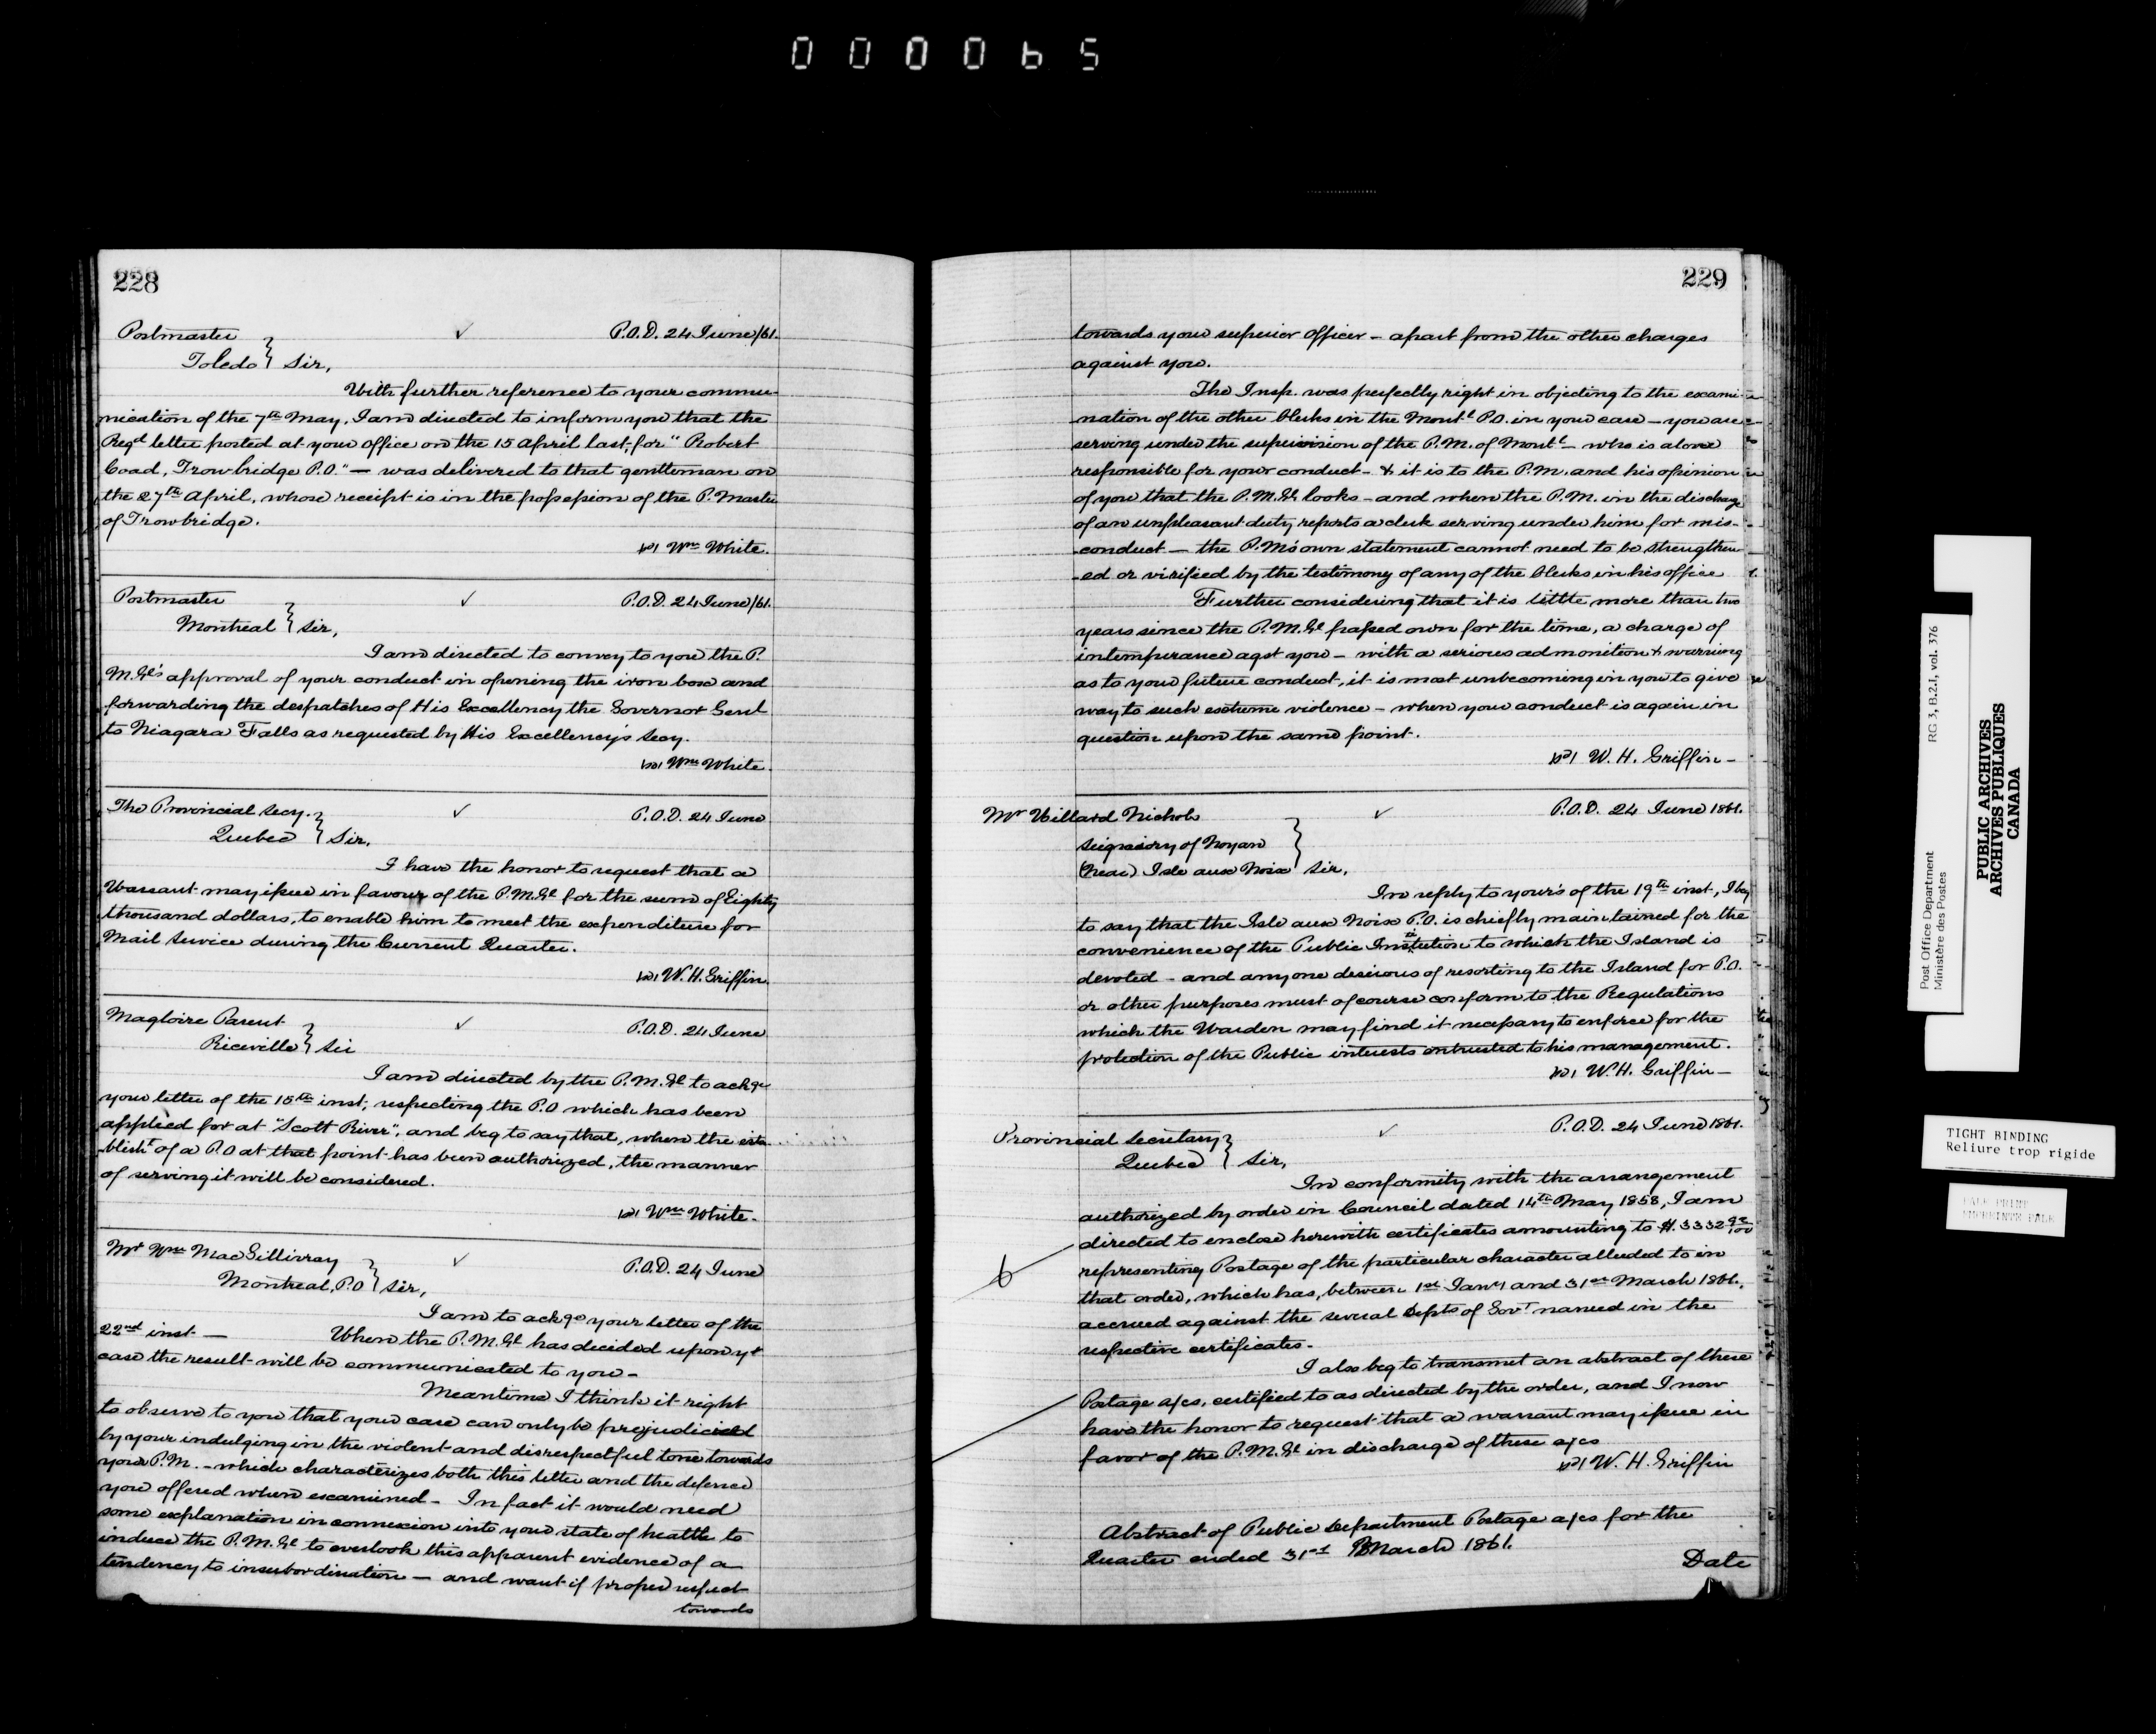 000065
228
Postmaster ✓ P.O.D. 24 June/61.
Toledo } Sir,
With further reference to your commu-
nication of the 7th May, I am directed to inform you that the
Regd letter posted at your Office on the 15 April last, for "Robert
Coad, Trowbridge P.O." — was delivered to that gentleman on
the 27th April, whose receipt is in the possession of the P. Master
of Trowbridge.
Wm White.
Postmaster ✓ P.O.D. 24 June/61.
Montreal } Sir,
I am directed to convey to you the P.
M. Gl's approval of your conduct in opening the iron box and
forwarding the despatches of His Excellency the Governor Genl
to Niagara Falls as requested by His Excellency's Secy.
Wm White.
The Provincial Secy. ✓ P.O.D. 24 June
Quebec } Sir,
I have the honor to request that a
Warrant may issue in favour of the P.M. Gl for the sum of Eighty
thousand dollars, to enable him to meet the expenditure for
Mail Service during the Current Quarter.
W. H. Griffin.
Magloire Parent ✓ P.O.D. 24 June
Riceville } Sir
I am directed by the P.M. Gl to ackge
your letter of the 15th inst, respecting the P.O which has been
applied for at "Scott River", and beg to say that, when the esta-
blisht of a P.O at that point has been authorized, the manner
of serving it will be considered.
Wm White.
Mr Wm MacGillivray ✓ P.O.D. 24 June
Montreal, P.O } Sir,
I am to ackge your letter of the
22nd inst — When the P.M. Gl has decided upon yr
case the result will be communicated to you —
Meantime I think it right
to observe to you that your case can only be prejudiced
by your indulging in the violent and disrespectful tone towards
your P.M. — which characterizes both this letter and the defence
you offered when examined — In fact it would need
some explanation in connexion into your state of health to
induce the P.M. Gl to overlook this apparent evidence of a
tendency to insubordination — and want if proper respect
towards
229
towards your superior Officer — apart from the other charges
against you.
The Insp. was perfectly right in objecting to the exami-
nation of the other Clerks in the Montl P.O. in your case — you are
serving under the supervision of the P.M. of Montl — who is alone
responsible for your conduct — & it is to the P.M. and his opinion
of you that the P.M. Gl looks — and when the P.M. in the discharge
of an unpleasant duty reports a clerk serving under him for mis-
conduct — the P.M's own statement cannot need to be strengthen-
-ed or virified by the testimony of any of the Clerks in his office
Further considering that it is little more than two
years since the P.M. Gl passed over for the time, a charge of
intemperance agst you — with a serious admonition & warning
as to your future conduct, it is most unbecoming in you to give
way to such extreme violence — when your conduct is again in
question upon the same point.
W. H. Griffin —
Mr Willard Nichols ✓ P.O.D. 24 June 1861.
Seigniory of Noyan
(Near) Isle aux Noix } Sir,
In reply to your's of the 19th inst, I beg
to say that the Isle aux Noix P.O. is chiefly maintained for the
convenience of the Public Institution to which the Island is
devoted — and any one desirous of resorting to the Island for P.O.
or other purposes must of course conform to the Regulations
which the Warden may find it necessary to enforce for the
protection of the Public interests entrusted to his management.
W. H. Griffin —
Provincial Secretary ✓ P.O.D. 24 June 1861.
Quebec } Sir,
In conformity with the arrangement
authorized by order in Council dated 14th May 1858, I am
directed to enclose herewith certificates amounting to $3332
representing Postage of the particular character alluded to in
that order, which has, between 1st Jany and 31st March 1861,
accrued against the several Depts of Govt named in the
respective certificates.
I also beg to transmit an abstract of these
Postage a/cs, certified to as directed by the order, and I now
have the honor to request that a warrant may issue in
favor of the P.M. Gl in discharge of these a/cs
W. H. Griffin
Abstract of Public Department Postage a/cs for the
Quarter ended 31st March 1861.
Date
Post Office Department RG 3, B.2.I, vol. 376
Ministère des Postes
PUBLIC ARCHIVES
ARCHIVES PUBLIQUES
CANADA
TIGHT BINDING
Reliure trop rigide